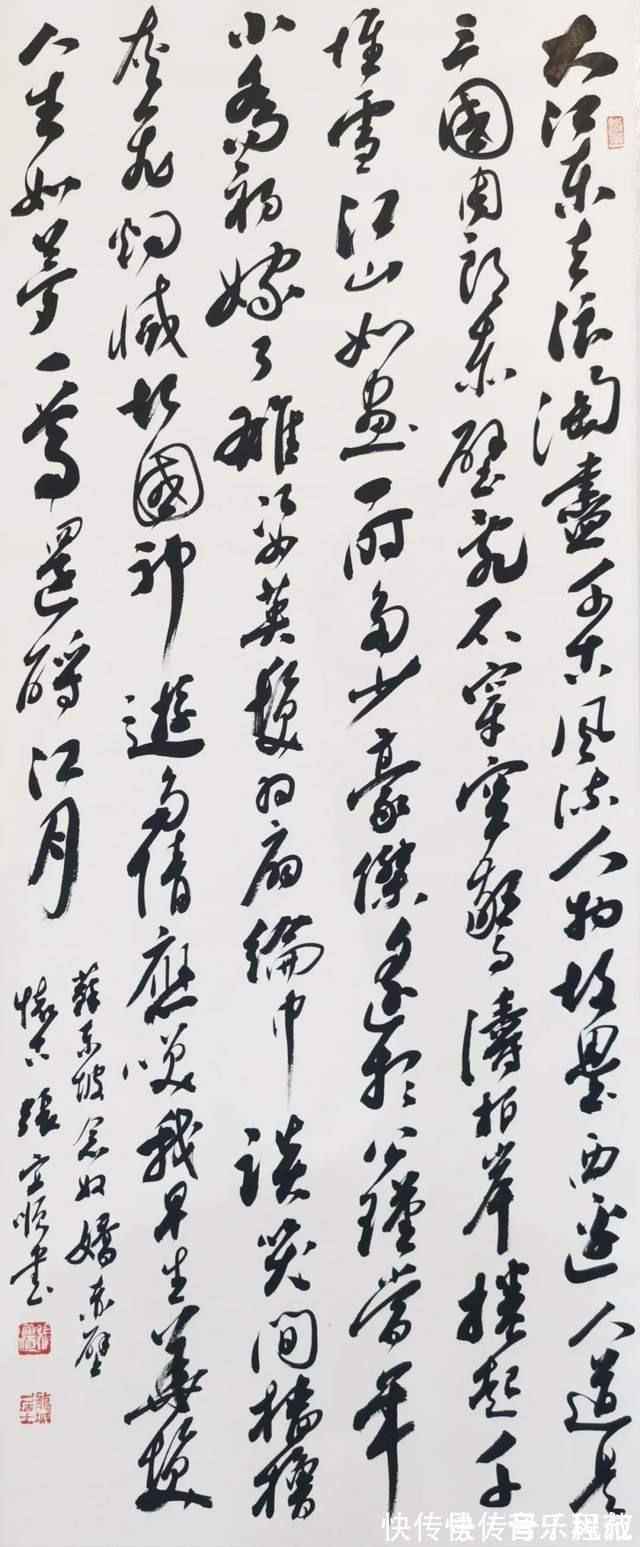 大江東去浪淘盡千古風流人物故壘西邊人道是
三國周郎赤壁亂石穿空驚濤拍岸捲起千
堆雪江山如畫一時多少豪傑遙想公瑾當年
小喬初嫁了雄姿英發羽扇綸巾談笑間檣櫓
灰飛烟滅故國神遊多情應笑我早生華髮
人生如夢一尊還酹江月
蘇東坡念奴嬌赤壁
懷古張宜順書
快传号